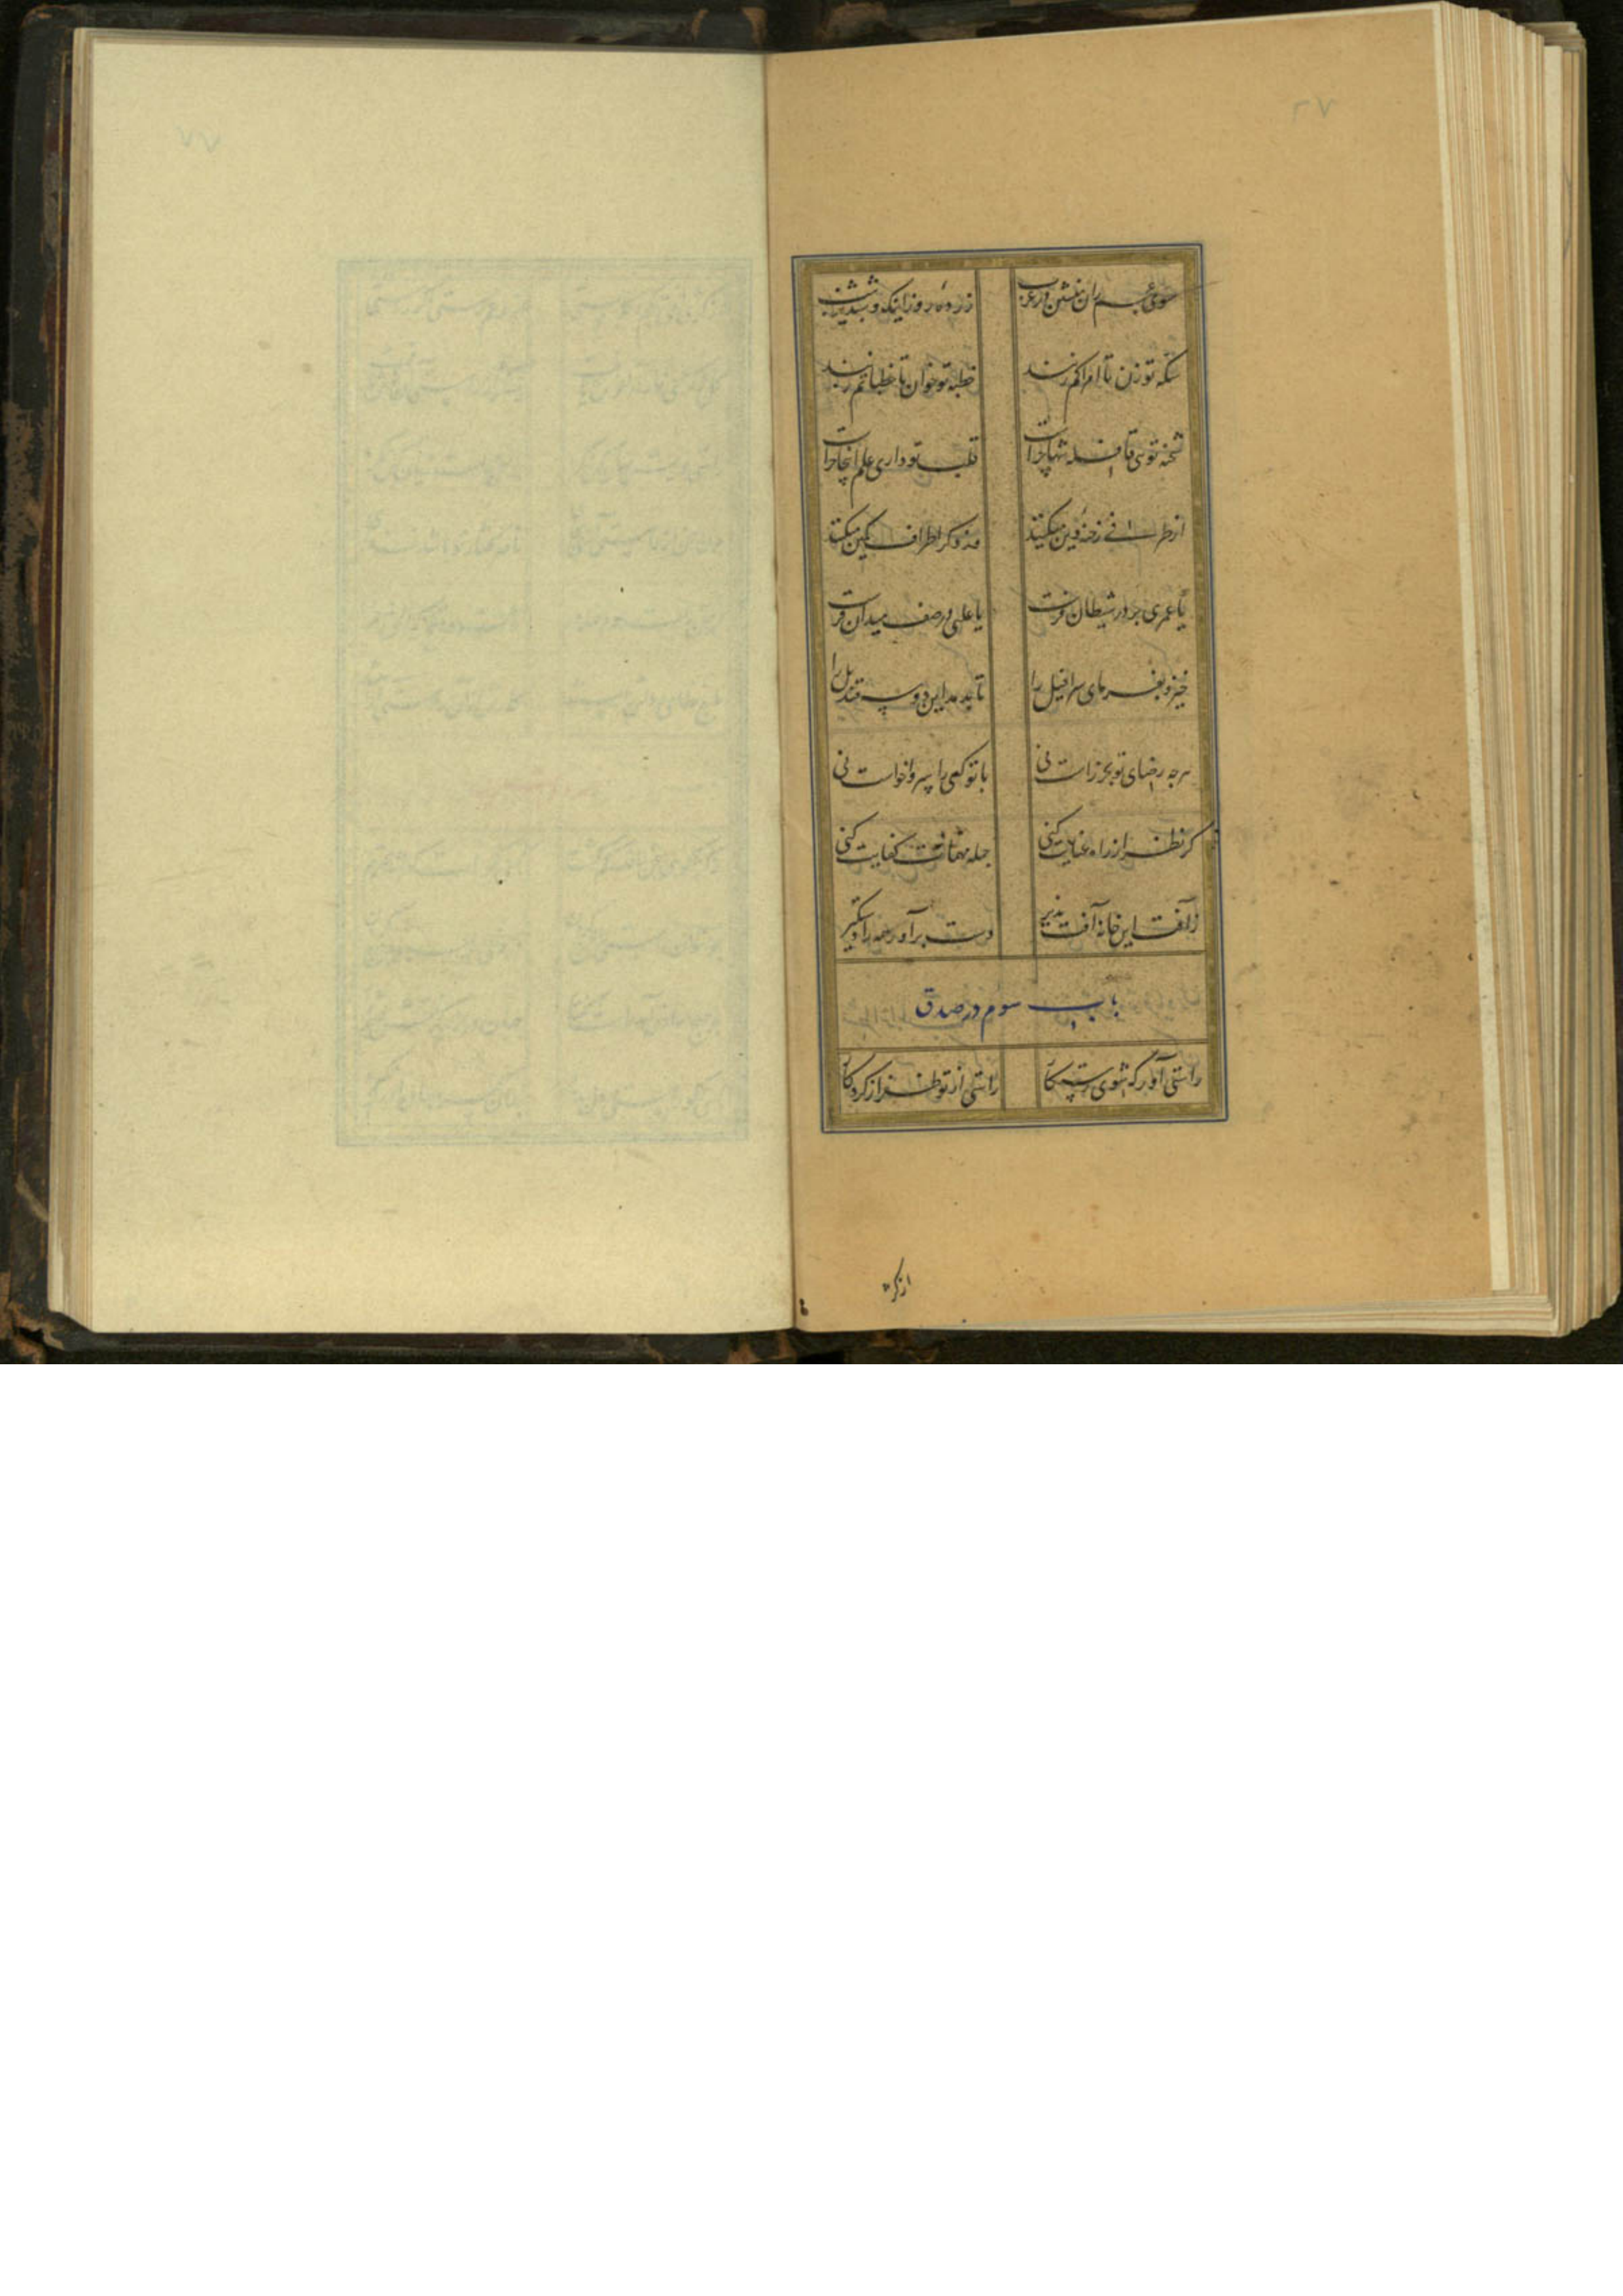 سوی عجم ران منشین در عرب زرده روز اینک و شبدیز شب
سکه تو زن تا امرا کم زنند خطبه تو خوان تا خطبا دم زنند
شحنه توئی قافله تنها چراست قلب تو داری علم آنجا چراست
از طرفی رخنه دین میکنند وز دگر اطراف کمین میکنند
یا عمری بر در شیطان فرست یا علی در صف میدان فرست
خیز و بفرمای سرافیل را تا بدمد این دو سه قندیل را
هرچه رضای تو بجز راست نی با تو کسی را سر واخواست نی
گر نظر از راه عنایت کنی جمله مهمات کفایت کنی
زآفت این خانه آفت پذیر دست برآور همه را دستگیر
باب سوم در صدق
راستی آور که شوی رستگار راستی از تو ظفر از کردگار